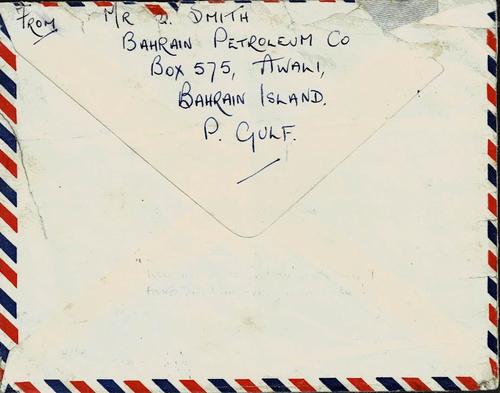 From
MR J. SMITH
BAHRAIN PETROLEUM CO
BOX 575, AWALI,
BAHRAIN ISLAND.
P. GULF.